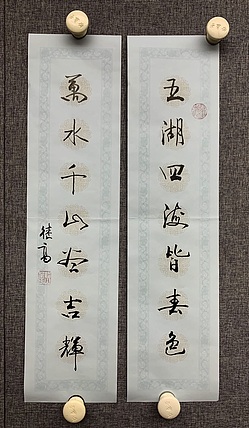 五湖四海皆春色
萬水千山尽吉輝